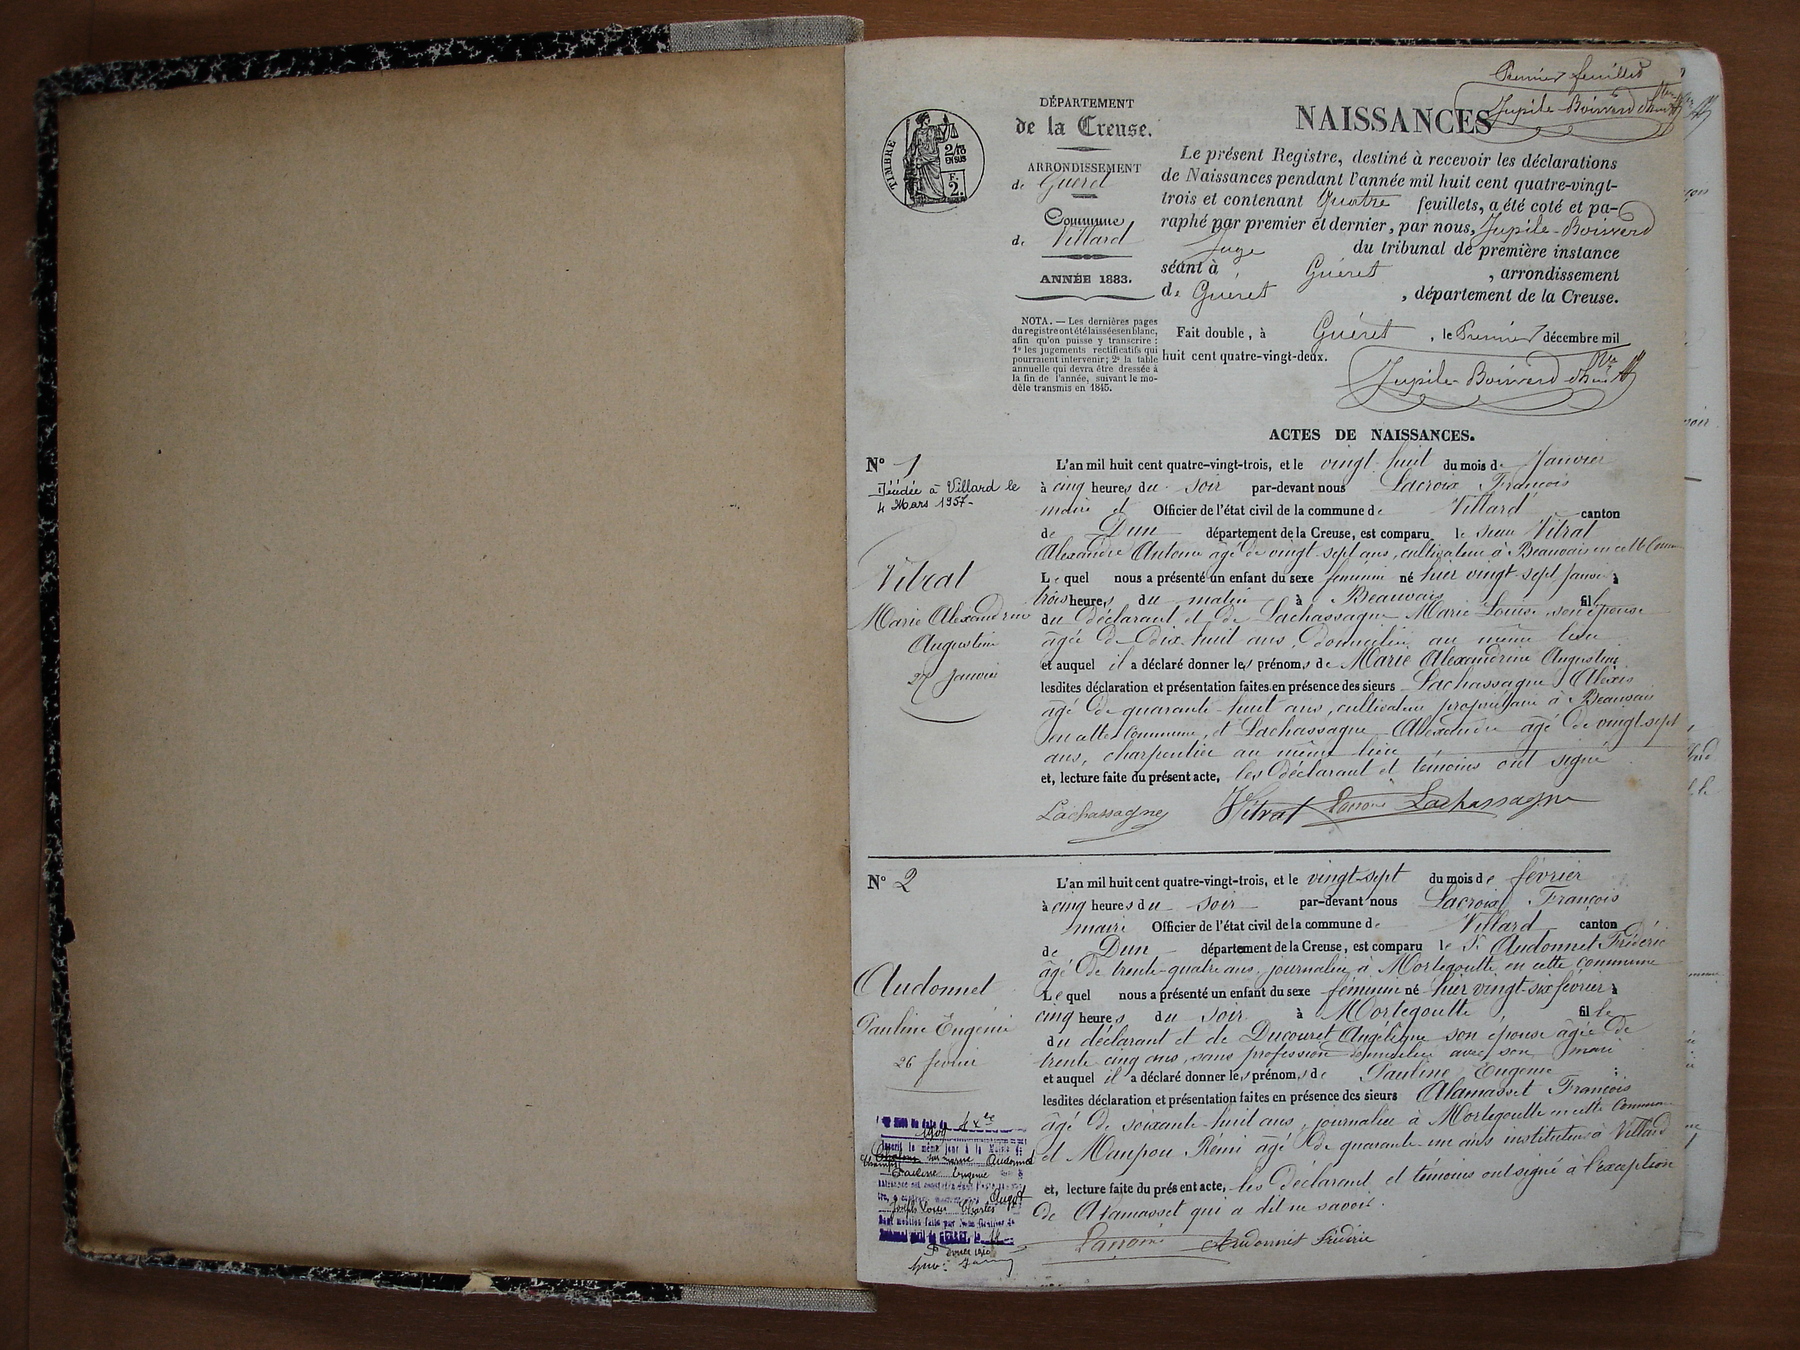 Premier feuillet
Jupile-Boisverd
TIMBRE
2/10
EN SUS
F.
2.
DÉPARTEMENT
de la Creuse.
ARRONDISSEMENT
de Guéret
Commune
de Villard
ANNÉE 1883.
NOTA. — Les dernières pages
du registre ont été laissées en blanc,
afin qu'on puisse y transcrire :
1º les jugements rectificatifs qui
pourraient intervenir; 2º la table
annuelle qui devra être dressée à
la fin de l'année, suivant le mo-
dèle transmis en 1845.
NAISSANCES
Le présent Registre, destiné à recevoir les déclarations
de Naissances pendant l'année mil huit cent quatre-vingt-
trois et contenant Quatre feuillets, a été coté et pa-
raphé par premier et dernier, par nous, Jupile-Boisverd
Juge du tribunal de première instance
séant à Guéret , arrondissement
de Guéret , département de la Creuse.
Fait double, à Guéret , le Premier décembre mil
huit cent quatre-vingt-deux.
Jupile-Boisverd
ACTES DE NAISSANCES.
Nº 1
Décédée à Villard le
4 Mars 1957-
Vitrat
Marie Alexandrine
Augustine
27 Janvier
L'an mil huit cent quatre-vingt-trois, et le vingt-huit du mois de Janvier
à cinq heures du soir par-devant nous Lacroix François
maire et Officier de l'état civil de la commune de Villard canton
de Dun département de la Creuse, est comparu le sieur Vitrat
Alexandre Antoine âgé de vingt-sept ans, cultivateur à Beauvais en cette Commune
Lequel nous a présenté un enfant du sexe féminin né hier vingt-sept janvier à
trois heures du matin à Beauvais fil
du déclarant et de Lachassagne Marie Louise son épouse
âgée de dix-huit ans, domiciliée au même lieu
et auquel il a déclaré donner les prénoms de Marie Alexandrine Augustine
lesdites déclaration et présentation faites en présence des sieurs Lachassagne Alexis
âgé de quarante-huit ans, cultivateur propriétaire à Beauvais
en cette commune, et Lachassagne Alexandre âgé de vingt-sept
ans, charpentier au même lieu
et, lecture faite du présent acte, les déclarant et témoins ont signé
Lachassagne Vitrat Lachassagne
Nº 2
Audonnet
Pauline Eugénie
26 février
L'an mil huit cent quatre-vingt-trois, et le vingt-sept du mois de février
à cinq heures du soir par-devant nous Lacroix François
maire Officier de l'état civil de la commune de Villard canton
de Dun département de la Creuse, est comparu le Sr Audonnet Frédéric
âgé de trente-quatre ans, journalier à Mortegoutte en cette commune
Lequel nous a présenté un enfant du sexe féminin né hier vingt-six février à
cinq heures du soir à Mortegoutte fille
du déclarant et de Ducouret Angélique son épouse âgée de
trente cinq ans, sans profession domiciliée avec son mari
et auquel il a déclaré donner les prénoms de Pauline Eugénie
lesdites déclaration et présentation faites en présence des sieurs Alamasset François
âgé de soixante-huit ans, journalier à Mortegoutte en cette Commune
et Maupou Rémi âgé de quarante-un ans instituteur à Villard
et, lecture faite du présent acte, les déclarant et témoins ont signé à l'exception
de Alamasset qui a dit ne savoir.
Audonnet Frédéric
1909
inscrit le même jour à la Mairie de
Audonnet
Pauline Eugénie
Joseph Louis Charles
Tribunal civil de GUÉRET, le 11